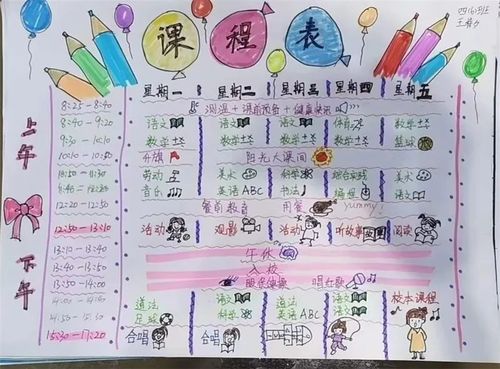 课程表
四(6)班
星期一 星期二 星期三 星期四 星期五
上午
8:25-8:40
8:40-9:20 语文 数学 语文 体育 数学
9:30-10:10 数学 数学 数学 篮球
10:10-10:50 升旗 阳光大课间
劳动 美术 科学 综合实践 美术
音乐 英语ABC 书法 编程 语文
12:20-12:50 餐前教育 用餐 yummy
12:50-13:10 活动 观影 活动 听故事 阅读
下午
13:10-13:40 午休
13:40-13:50 入校
13:50-14:00 眼保健操 唱红歌
道法 语文 道法 语文 校本课程
足球 科学 英语ABC 语文
15:30-17:20 合唱 合唱